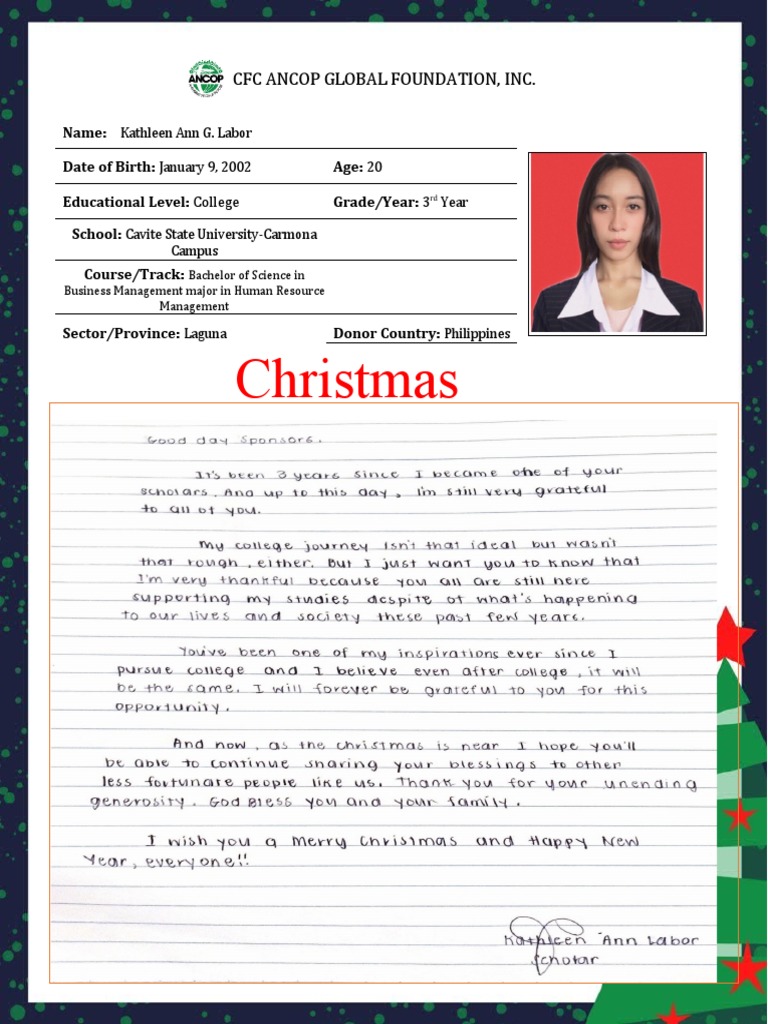 ANCOP
CFC ANCOP GLOBAL FOUNDATION, INC.
Name: Kathleen Ann G. Labor
Date of Birth: January 9, 2002 Age: 20
Educational Level: College Grade/Year: 3rd Year
School: Cavite State University-Carmona
Campus
Course/Track: Bachelor of Science in
Business Management major in Human Resource
Management
Sector/Province: Laguna Donor Country: Philippines
Christmas
Good day Sponsors.
It's been 3 years since I became one of your
scholars. And up to this day, I'm still very grateful
to all of you.
My college journey isn't that ideal but wasn't
that rough, either. But I just want you to know that
I'm very thankful because you all are still here
supporting my studies despite of what's happening
to our lives and society these past few years.
You've been one of my inspirations ever since I
pursue college and I believe even after college, it will
be the same. I will forever be grateful to you for this
opportunity.
And now, as the christmas is near I hope you'll
be able to continue sharing your blessings to other
less fortunate people like us. Thank you for your unending
generosity. God Bless you and your family.
I wish you a Merry Christmas and Happy New
Year, everyone!!
Kathleen Ann Labor
Scholar